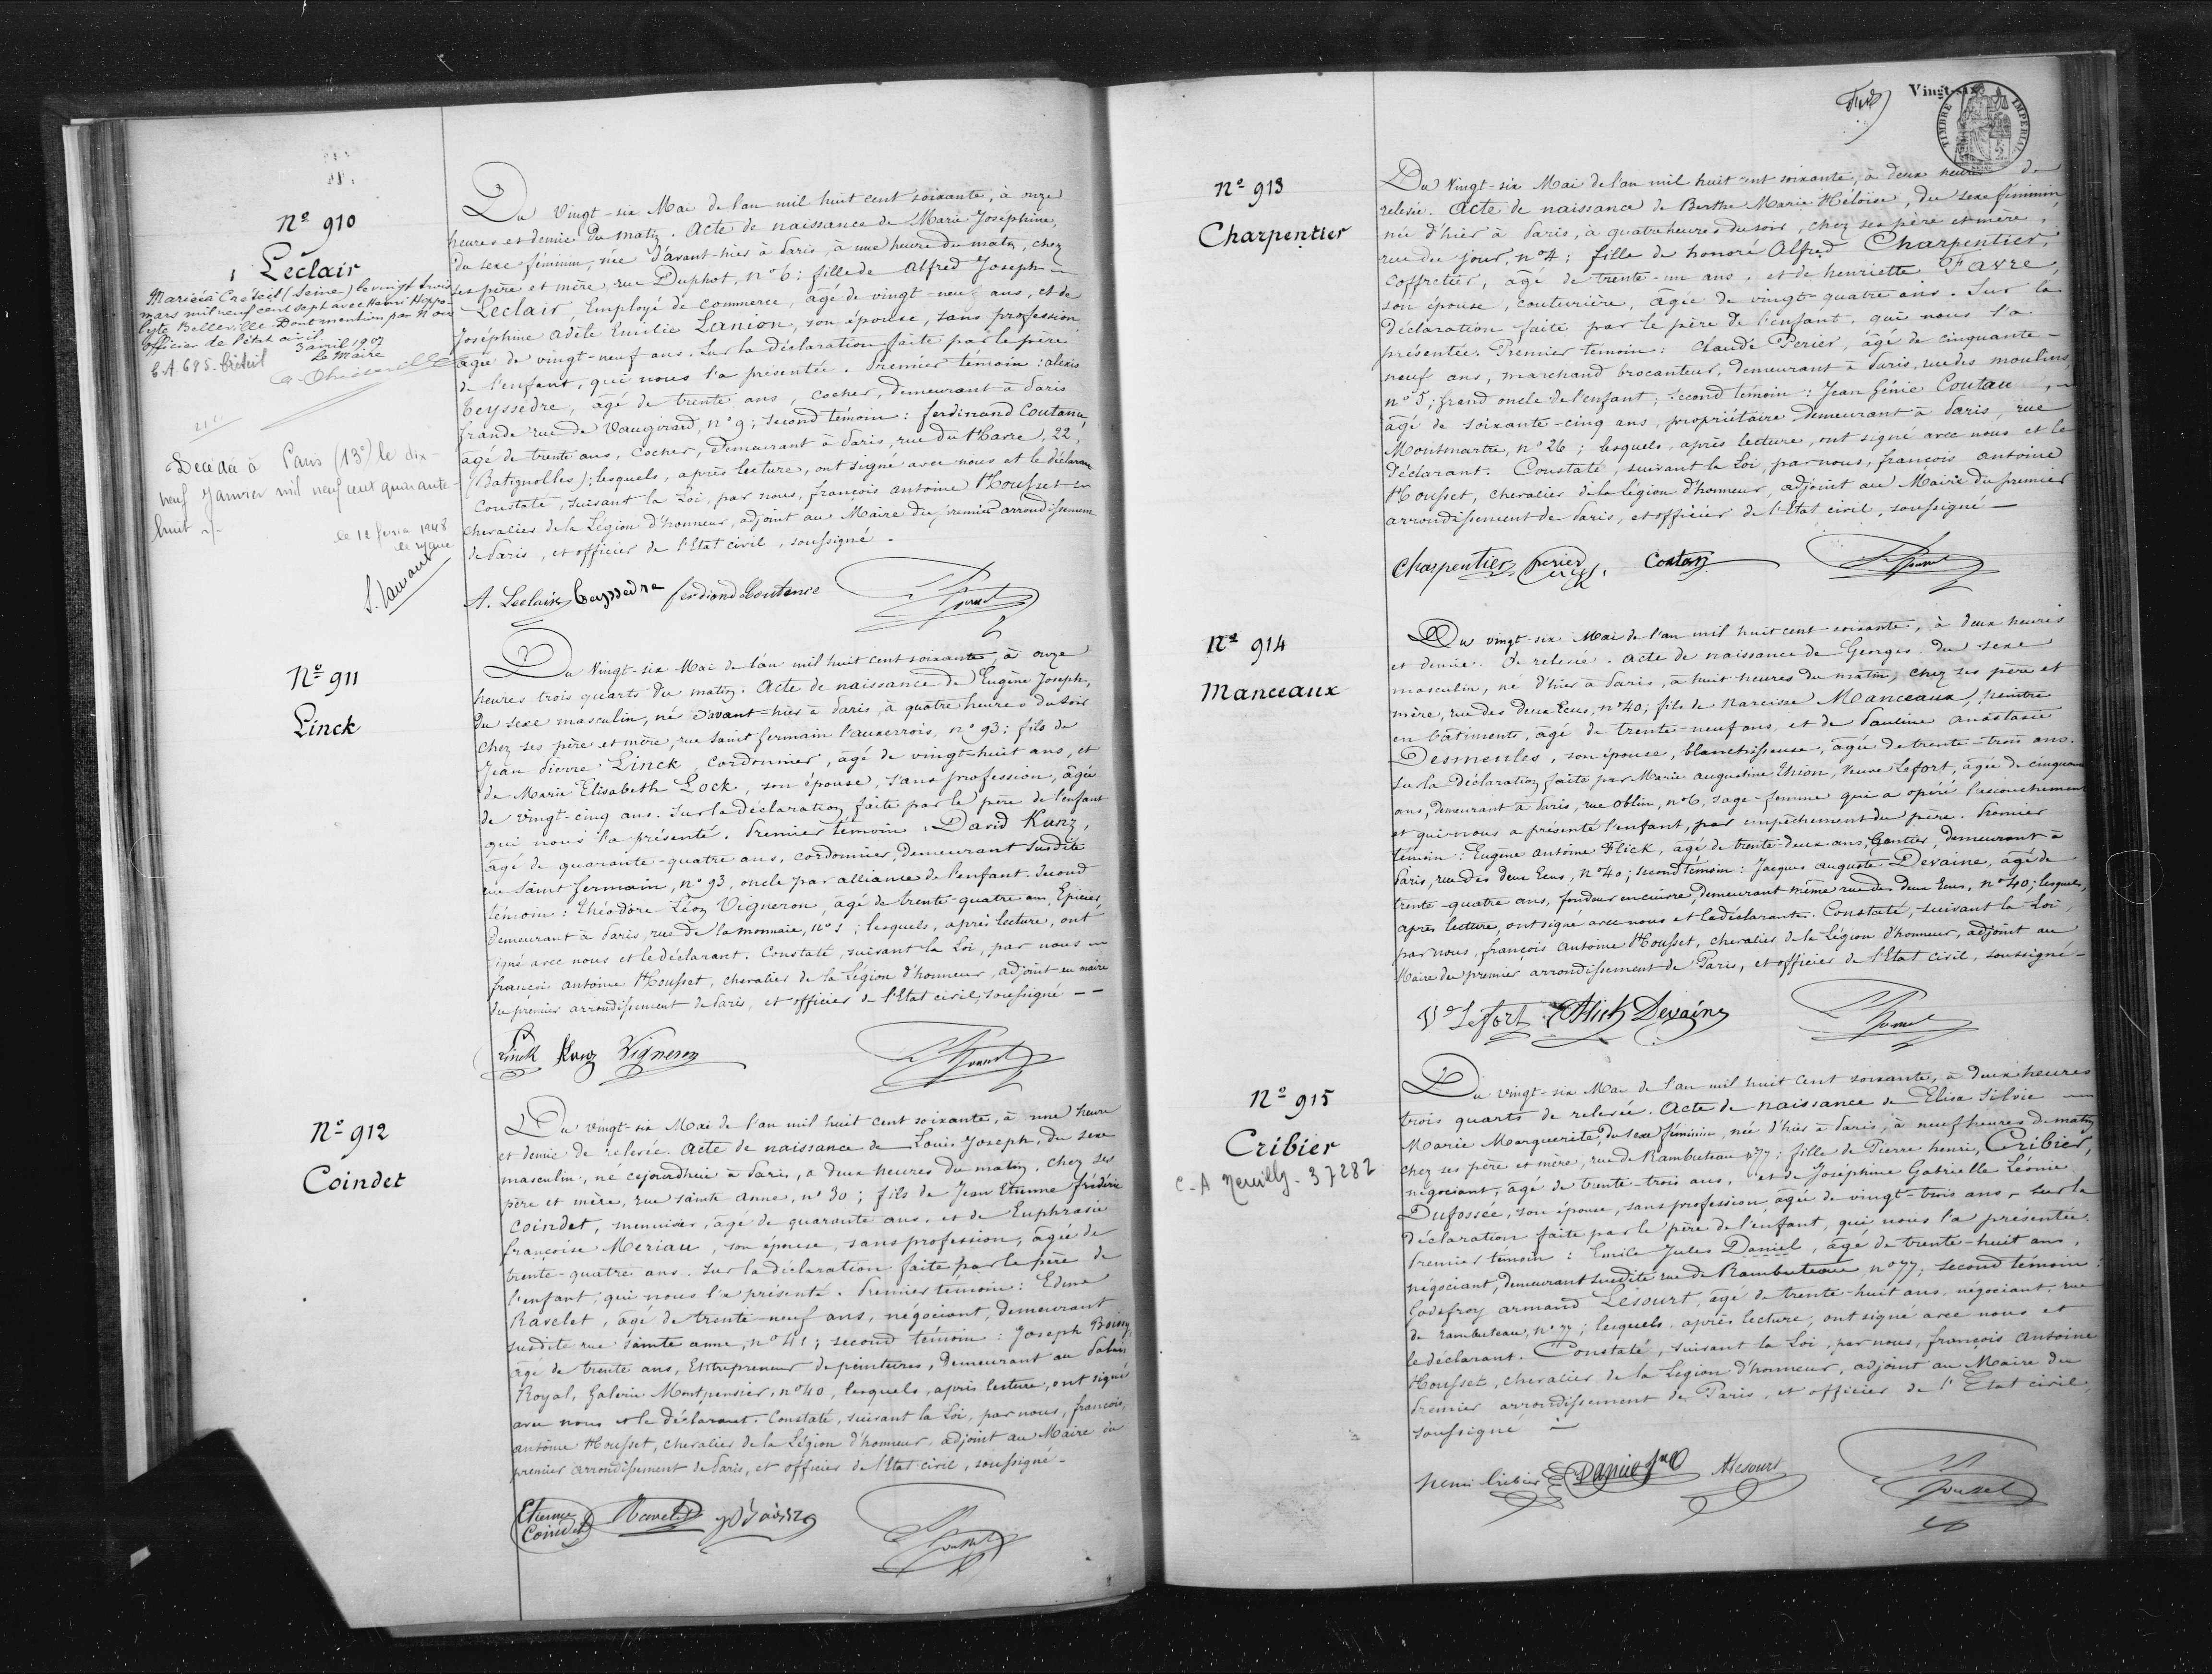 Nº 910
Leclair
Mariée à Créteil (Seine) le vingt trois
mars mil neuf cent sept avec Henri Hippo-
lyte Belleville. Dont mention par Nous
officier de l'état civil.
3 avril 1907
Le Maire
C.A. 695. Créteil
Décédée à Paris (13e) le dix-
neuf Janvier mil neuf cent quarante-
huit
le 12 février 1948
Du Vingt-six Mai de l'an mil huit cent soixante, à onze
heures et demie du matin. Acte de naissance de Marie Joséphine,
du sexe féminin, née d'avant-hier à Paris, à une heure du matin, chez
ses père et mère, rue Duphot, nº 6; fille de Alfred Joseph
Leclair, Employé de commerce, âgé de vingt-neuf ans, et de
Joséphine Adèle Emilie Lanion, son épouse, sans profession
âgée de vingt-neuf ans. Sur la déclaration faite par le père
de l'enfant, qui nous l'a présentée. Premier témoin: alexis
Teyssèdre, âgé de trente ans, cocher, demeurant à Paris
grande rue de Vaugirard, nº 9; second témoin: ferdinand Coutance
âgé de trente ans, cocher, demeurant à Paris, rue du Havre, 22,
(Batignolles); lesquels, après lecture, ont signé avec nous et le déclarant
Constaté, suivant la Loi, par nous, françois antoine Housset
chevalier de la Légion d'honneur, adjoint au Maire du premier arrondissement
de Paris, et officier de l'Etat civil, soussigné.
A. Leclair Teyssedre ferdiond Coutance
Nº 911
Linck
Du Vingt-six Mai de l'an mil huit cent soixante, à onze
heures trois quarts du matin. Acte de naissance de Eugène Joseph,
du sexe masculin, né d'avant-hier à Paris, à quatre heures du soir
chez ses père et mère, rue Saint Germain l'auxerrois, nº 93: fils de
Jean Pierre Linck, cordonnier, âgé de vingt-huit ans, et
de Marie Elisabeth Lock, son épouse, sans profession, âgée
de vingt-cinq ans. Sur la déclaration faite par le père de l'enfant
qui nous l'a présenté. Premier témoin: David Kunz,
âgé de quarante-quatre ans, cordonnier, demeurant susdite
rue Saint Germain, nº 93, oncle par alliance de l'enfant. Second
témoin: Théodore Léon Vigneron, âgé de trente-quatre ans, Epicier,
demeurant à Paris, rue de la monnaie, nº 1; lesquels, après lecture, ont
signé avec nous et le déclarant. Constaté, suivant la Loi, par nous
françois antoine Housset, chevalier de la Légion d'honneur, adjoint au maire
du premier arrondissement de Paris, et officier de l'Etat civil, soussigné
Linck Kunz Vigneron
Nº 912
Coindet
Du vingt-six Mai de l'an mil huit cent soixante, à une heure
et demie de relevée. Acte de naissance de Louis Joseph, du sexe
masculin, né cejourdhui à Paris, à deux heures du matin, chez ses
père et mère, rue sainte anne, nº 30; fils de Jean Etienne frédéric
Coindet, menuisier, âgé de quarante ans, et de Euphrasie
françoise Meriau, son épouse, sans profession, âgée de
trente-quatre ans. Sur la déclaration faite par le père de
l'enfant, qui nous l'a présenté. Premier témoin: Edme
Ravelet, âgé de trente-neuf ans, négociant, demeurant
susdite rue Sainte anne, nº 41; second témoin: Joseph Boissy,
âgé de trente ans, Entrepreneur de peintures, demeurant au Palais
Royal, Galerie Montpensier, nº 40, lesquels, après lecture, ont signé
avec nous et le déclarant. Constaté, suivant la Loi, par nous, françois,
antoine Housset, chevalier de la Légion d'honneur, adjoint au Maire du
premier arrondissement de Paris, et officier de l'Etat civil, soussigné
Etienne
Coindet Ravelet
Vingt-six
TIMBRE IMPERIAL
Nº 913
Charpentier
Du Vingt-six Mai de l'an mil huit cent soixante, à deux heures de
relevée. Acte de naissance de Berthe Marie Héloïse, du sexe féminin,
née d'hier à Paris, à quatre heures du soir, chez ses père et mère,
rue du jour, nº 4; fille de honoré Alfred Charpentier,
Coffretier, âgé de trente-un ans, et de henriette Favre,
son épouse, couturière, âgée de vingt-quatre ans. Sur la
déclaration faite par le père de l'enfant, qui nous l'a
présentée. Premier témoin: Claude Perier, âgé de cinquante-
neuf ans, marchand brocanteur, demeurant à Paris, rue des moulins,
nº 5; grand oncle de l'enfant; second témoin: Jean Génie Coutau
âgé de soixante-cinq ans, propriétaire demeurant à Paris, rue
Montmartre, nº 26; lesquels, après lecture, ont signé avec nous et le
déclarant. Constaté, suivant la Loi, par nous, françois antoine
Housset, chevalier de la Légion d'honneur, adjoint au Maire du premier
arrondissement de Paris, et officier de l'Etat civil, soussigné
Charpentier perier
Nº 914
Manceaux
Du vingt-six Mai de l'an mil huit cent soixante, à deux heures
et demie de relevée. Acte de naissance de Georges du sexe
masculin, né d'hier à Paris, à huit heures du matin, chez ses père et
mère, rue des Deux Ecus, nº 40; fils de Narcisse Manceaux, peintre
en bâtiments, âgé de trente-neuf ans, et de Pauline anastasie
Desmeules, son épouse, blanchisseuse, âgée de trente-trois ans.
Sur la déclaration faite par Marie augustine Thion, Veuve Lefort, âgée de cinquante
ans, demeurant à Paris, rue Oblin, nº 6, sage-femme qui a opéré l'accouchement
et qui nous a présenté l'enfant, par empêchement du père. Premier
témoin: Eugène antoine Flick, âgé de trente-deux ans, Gantier, demeurant à
Paris, rue des deux Ecus, nº 40; second témoin: Jacques auguste Devaine, âgé de
trente-quatre ans, fondeur en cuivre, demeurant même rue des deux Ecus, nº 40; lesquels,
après lecture, ont signé avec nous et la déclarante. Constaté, suivant la Loi,
par nous, françois antoine Housset, chevalier de la Légion d'honneur, adjoint au
Maire du premier arrondissement de Paris, et officier de l'Etat civil, soussigné
Ve Lefort EFlick Devaine
Nº 915
Cribier
C-A Neuilly - 37282
Du vingt-six Mai de l'an mil huit cent soixante, à deux heures
trois quarts de relevée. Acte de naissance de Elisa Silvie
Marie Marguerite, du sexe féminin, née d'hier à Paris, à neuf heures du matin
chez ses père et mère, rue de Rambuteau 77; fille de Pierre henri, Cribier,
négociant, âgé de trente-trois ans, et de Joséphine Gabrielle Léonie
Dufossée, son épouse, sans profession âgée de vingt-trois ans. Sur la
déclaration faite par le père de l'enfant, qui nous l'a présentée.
Premier témoin: Emile Jules Daniel, âgé de trente-huit ans,
négociant, demeurant susdite rue de Rambuteau nº 77; second témoin:
Godefroy armand Lesourt, âgé de trente-huit ans, négociant, rue
de rambuteau, nº 77; lesquels, après lecture, ont signé avec nous et
le déclarant. Constaté, suivant la Loi, par nous, françois antoine
Housset, chevalier de la Légion d'honneur, adjoint au Maire du
Premier arrondissement de Paris, et officier de l'Etat civil,
soussigné
henri Cribier E Daniel ALesourt